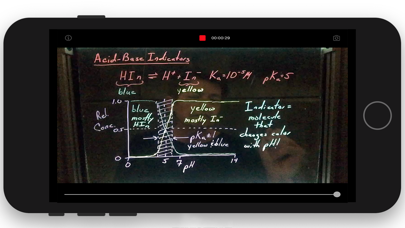 00:00:29
Acid-Base Indicators
HIn ⇌ H⁺ + In⁻ Kₐ=10⁻⁵M pKₐ=5
blue yellow
1.0
blue mostly HIn
yellow mostly In⁻
Rel. Conc.
0.5
pKₐ±1
yellow & blue
0
0 5 7 14
pH
Indicator =
molecule
that
changes color
with pH!